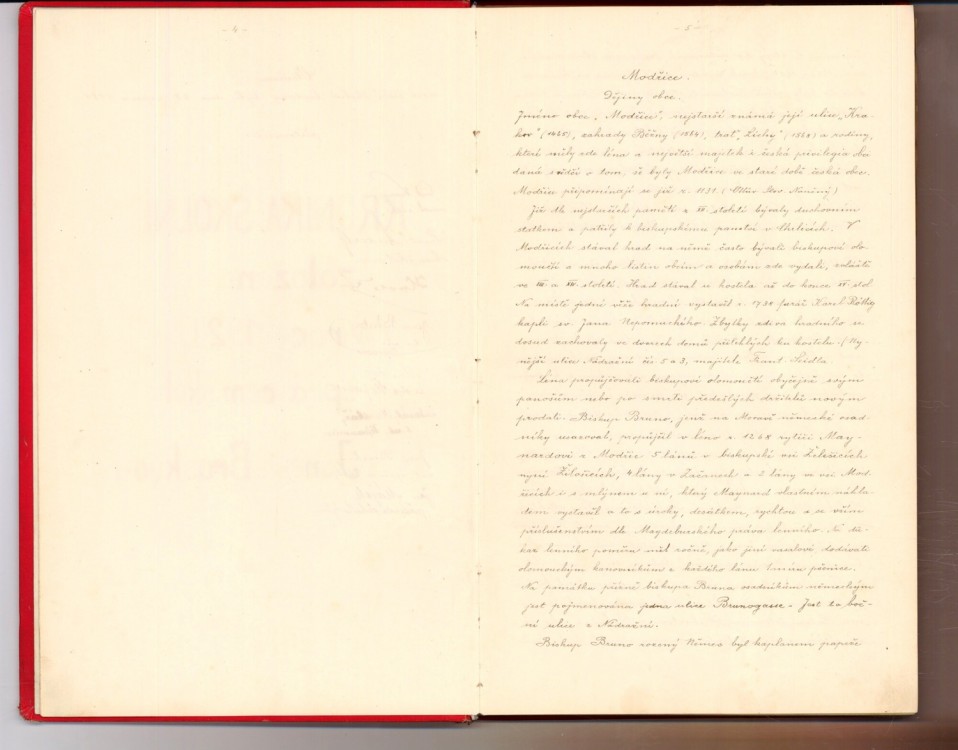 - 4 -
- 5 -
Modřice.
Dějiny obce.
Jméno obce „Modřice", nejstarší známá její ulice „Kra-
kov" (1425), zahrady Běčny (1564), trať „Lichy" (1564) a rodiny,
které měly zde léna a největší majetek i česká privilegia obci
daná svědčí o tom, že byly Modřice ve staré době česká obec.
Modřice připomínají se již r. 1131. (Ottův Slov. Naučný)
Již dle nejstarších pamětí z XI. století bývaly duchovním
statkem a patřily k biskupskému panství v Chrlicích. V
Modřicích stával hrad na němž často bývali biskupové olo-
moučtí a mnoho listin obcím a osobám zde vydali, zvláště
ve XIII a XIV. století. Hrad stával u kostela až do konce XV stol.
Na místě jedné věže hradní vystavěl r. 1784 farář Karel
kapli sv. Jana Nepomuckého. Zbytky zdiva hradního se
dosud zachovaly ve dvorech domů přilehlých ku kostelu. (Ny-
nější ulice Nádražní čís 5 a 3, majitele Frant. Seidla.
Léna propůjčovali biskupové olomoučtí obyčejně svým
panošům nebo po smrti předešlých držitelů novým
prodali. Biskup Bruno, jenž na Moravě německé osad-
níky usazoval, propůjčil v léno r. 1268 rytíři May-
nardovi z Modřic 5 lánů v biskupské vsi Želešicích
nyní Želošicích, 4 lány v a 2 lány ve vsi Mod-
řicích i s mlýnem v ní, který Maynard vlastním nákla-
dem vystavěl a to s úroky, desátkem, rychtou a se vším
příslušenstvím dle Magdeburského práva lenního. Na dů-
kaz lenního poměru měl ročně, jako jiní vasalové dodávati
olomouckým kanovníkům z každého lánu 1 míru pšenice.
Na památku přízně biskupa Bruna osadníkům německým
jest pojmenována jedna ulice Brunogasse - Jest to boč-
ní ulice z Nádražní.
Biskup Bruno rozený Němec byl kaplanem papeže